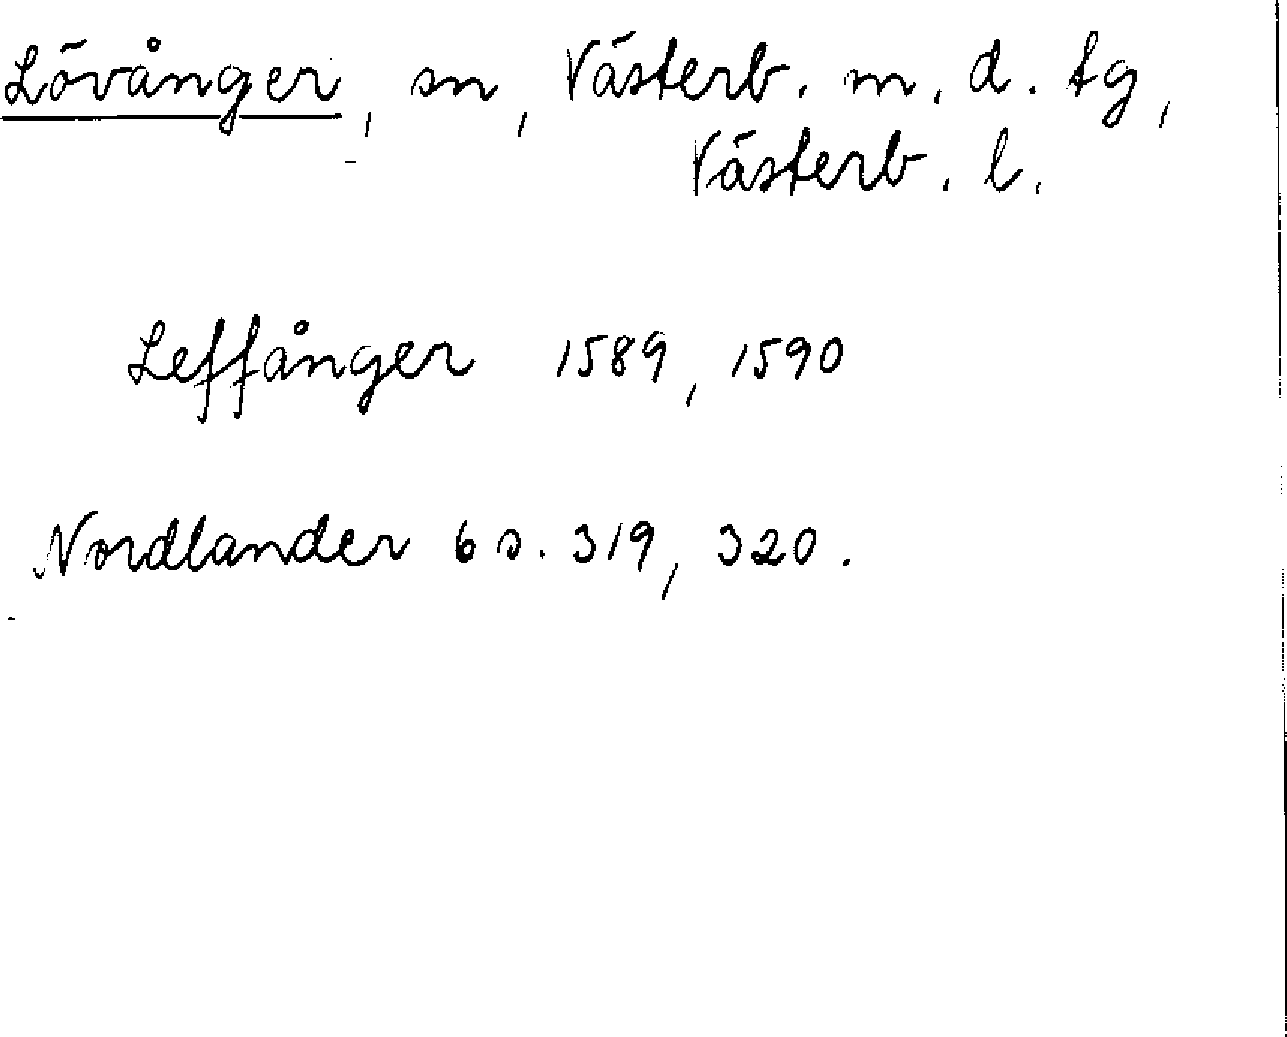 Lövånger, sn, Västerb. m. d. tg,
Västerb. l.
Leffånger 1589, 1590
Nordlander 6 s. 319, 320.